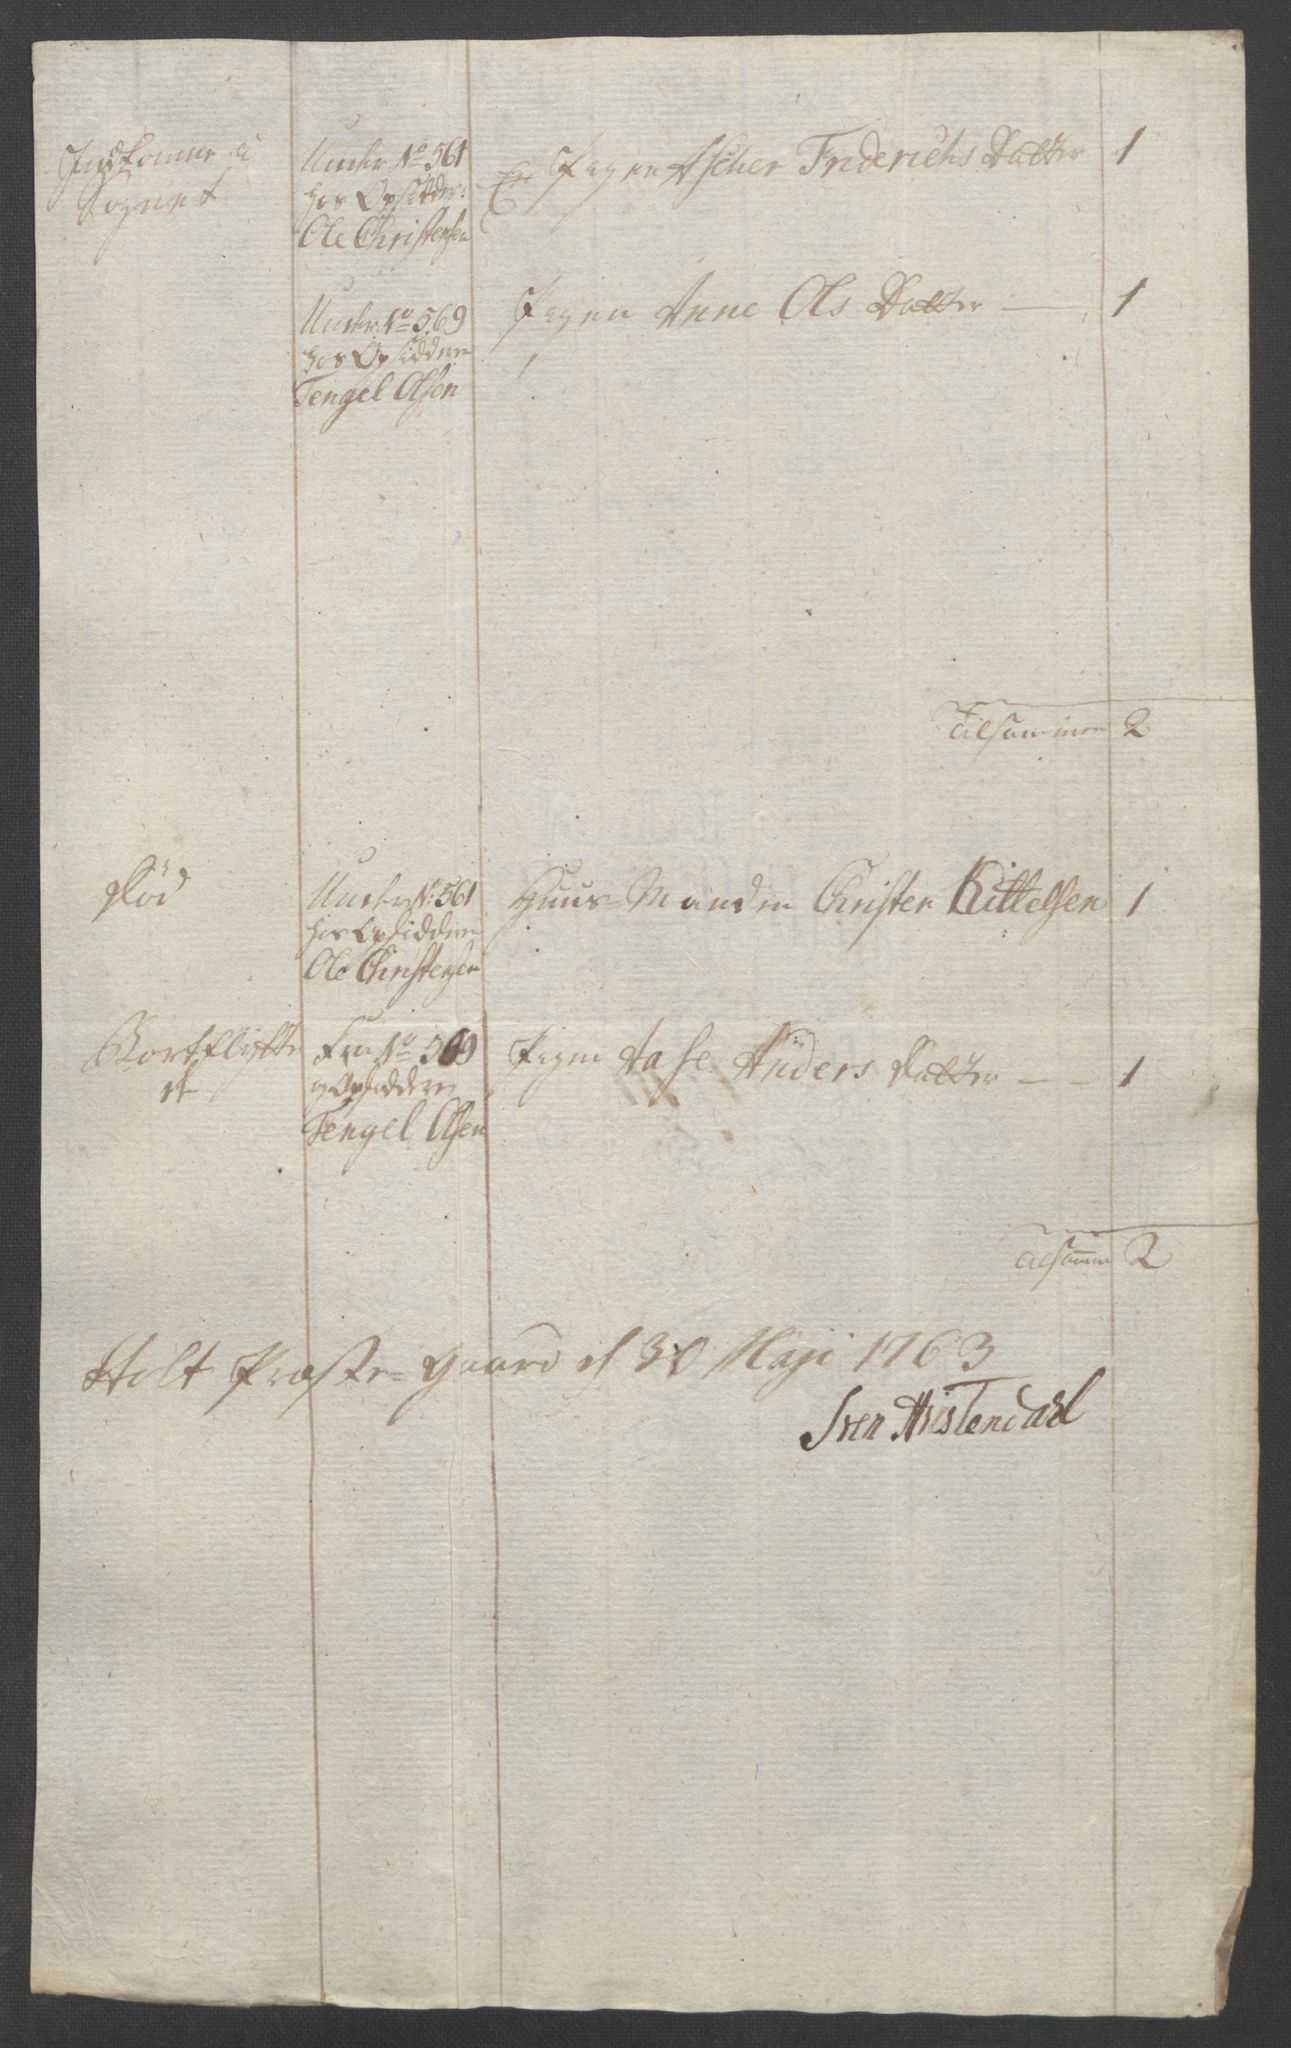 Indkomne i
Sognet
Under No 561
hos Opsidder:
Ole Christensen
En Pigen Ascher Friderichs Datter 1
Under No 569
hos Opsidderen
Tengel Olsen
Pigen Anne Ols Datter — 1
Tilsammen 2
Död
Under No 561
hos Opsidderen
Ole Christensen
Huus-Manden Christen Kittelsen 1
Bortflytte
t
Fra No 569
Opsidderen
Tengel Olsen
Pigen Aase Anders Datter — 1
Tilsamen 2
Holt Præste-Gaard d 30 Maji 1763
Sven Avistendahl